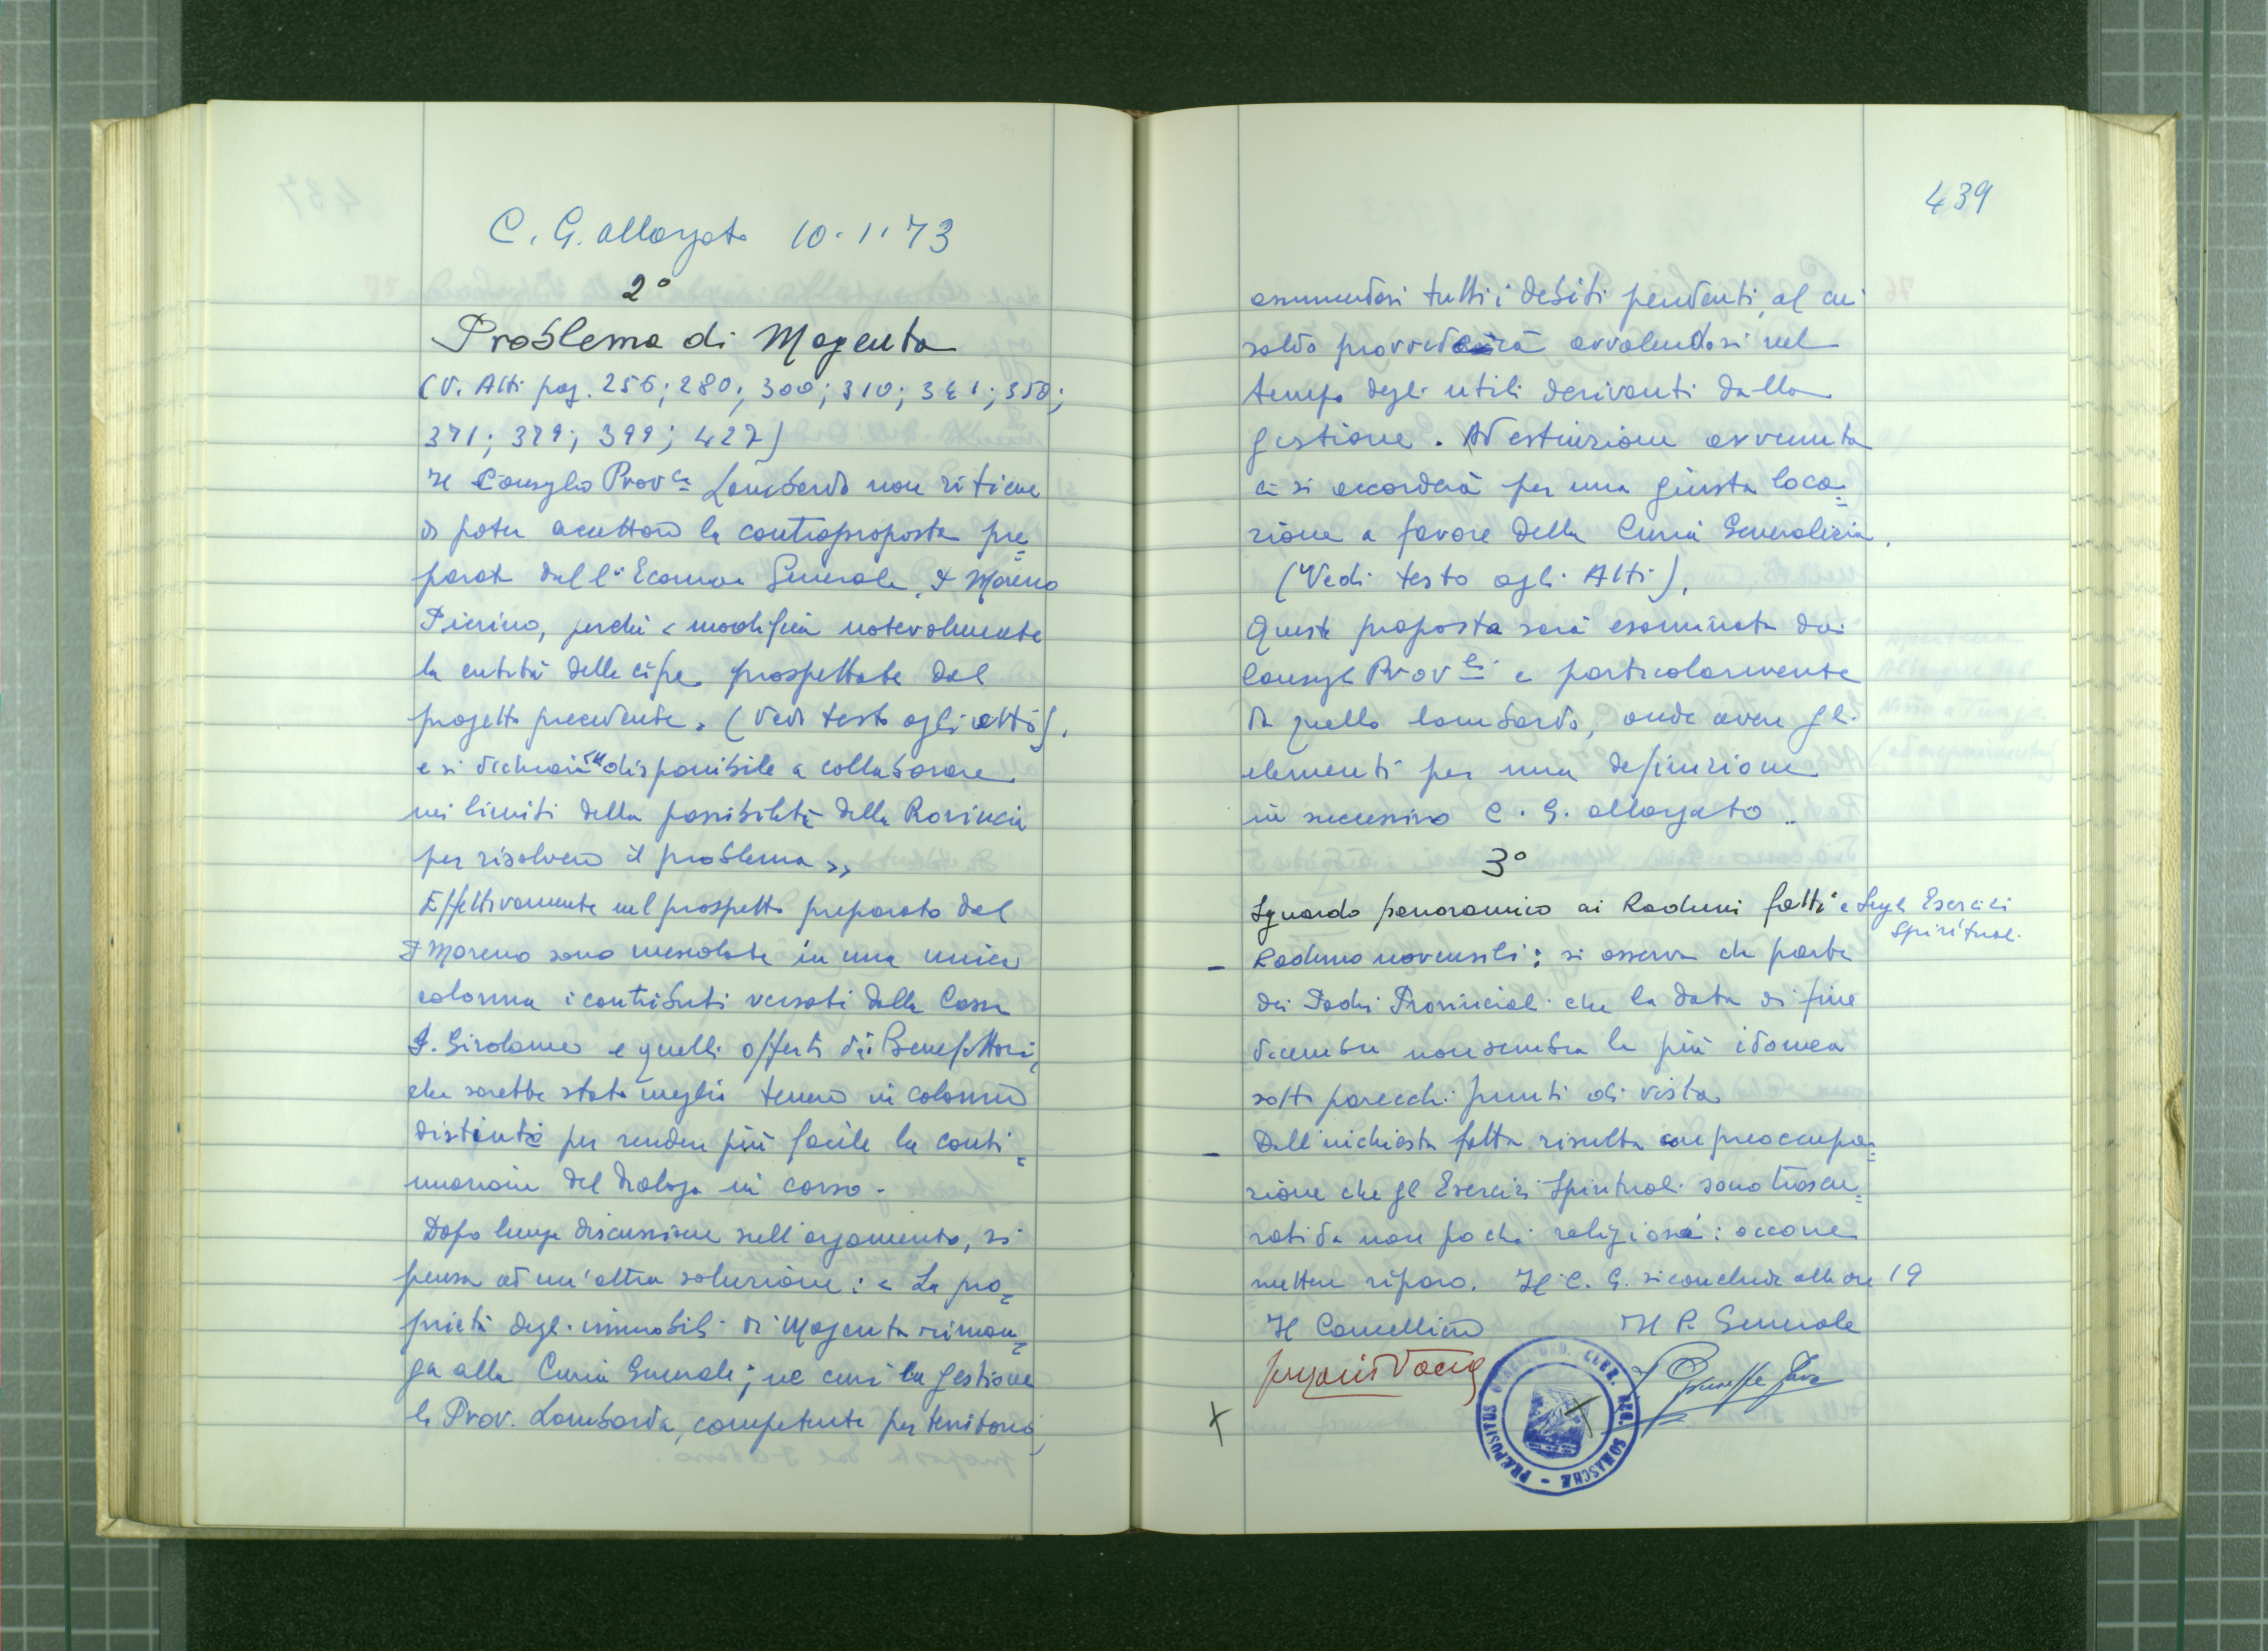 C. G. allargato 10.1.73
2°
Problema di Magenta
(V. Atti pag. 256; 280; 300; 310; 341; 350;
371; 379; 399; 427)
Il Consiglio Prov.le Lombardo non ritiene
di poter accettare la controproposta pre=
parata dall'Economo Generale, P. Moreno
Pierino, perchè « modifica notevolmente
la entità delle cifre prospettate dal
progetto precedente » (Vedi testo agli atti),
e si dichiara disponibile a collaborare
nei limiti della possibilità della Provincia
per risolvere il problema »
Effettivamente nel prospetto preparato dal
P. Moreno sono mescolate in una unica
colonna i contributi versati dalla Cassa
S. Girolamo e quelli offerti dai Benefattori,
che sarebbe stato meglio tenere in colonne
distinte per rendere più facile la conti=
nuazione del dialogo in corso.
Dopo lunga discussione sull'argomento, si
pensa ad un'altra soluzione: « La pro=
prietà degli immobili di Magenta riman=
ga alla Curia Generale; ne curi la gestione
la Prov. Lombarda, competente per territorio,
439
assumendosi tutti i debiti pendenti, al cui
saldo provvederà avvalendosi nel
tempo degli utili derivanti dalla
gestione. Ad estinzione avvenuta
ci si accorderà per una giusta loca=
zione a favore della Curia Generalizia.
(Vedi testo agli Atti).
Questa proposta sarà esaminata dai
Consigli Prov.li e particolarmente
da quello lombardo, onde avere gli
elementi per una definizione
in successivo C. G. allargato.
3°
Sguardo panoramico ai Raduni fatti e sugli Esercizi
Spirituali.
- Raduno novensili: si osserva da parte
dei Padri Provinciali che la data di fine
dicembre non sembra la più idonea
sotto parecchi punti di vista
- Dall'inchiesta fatta risulta con preoccupa=
zione che gli Esercizi Spirituali sono trascu=
rati da non pochi religiosi: occorre
mettere riparo. Il C. G. si conclude alle ore 19
Il Cancelliere Il P. Generale
P. Giuseppe Fava
PRÆPOSITUS GENER. ORD. CLER. REG. SOMASCHÆ